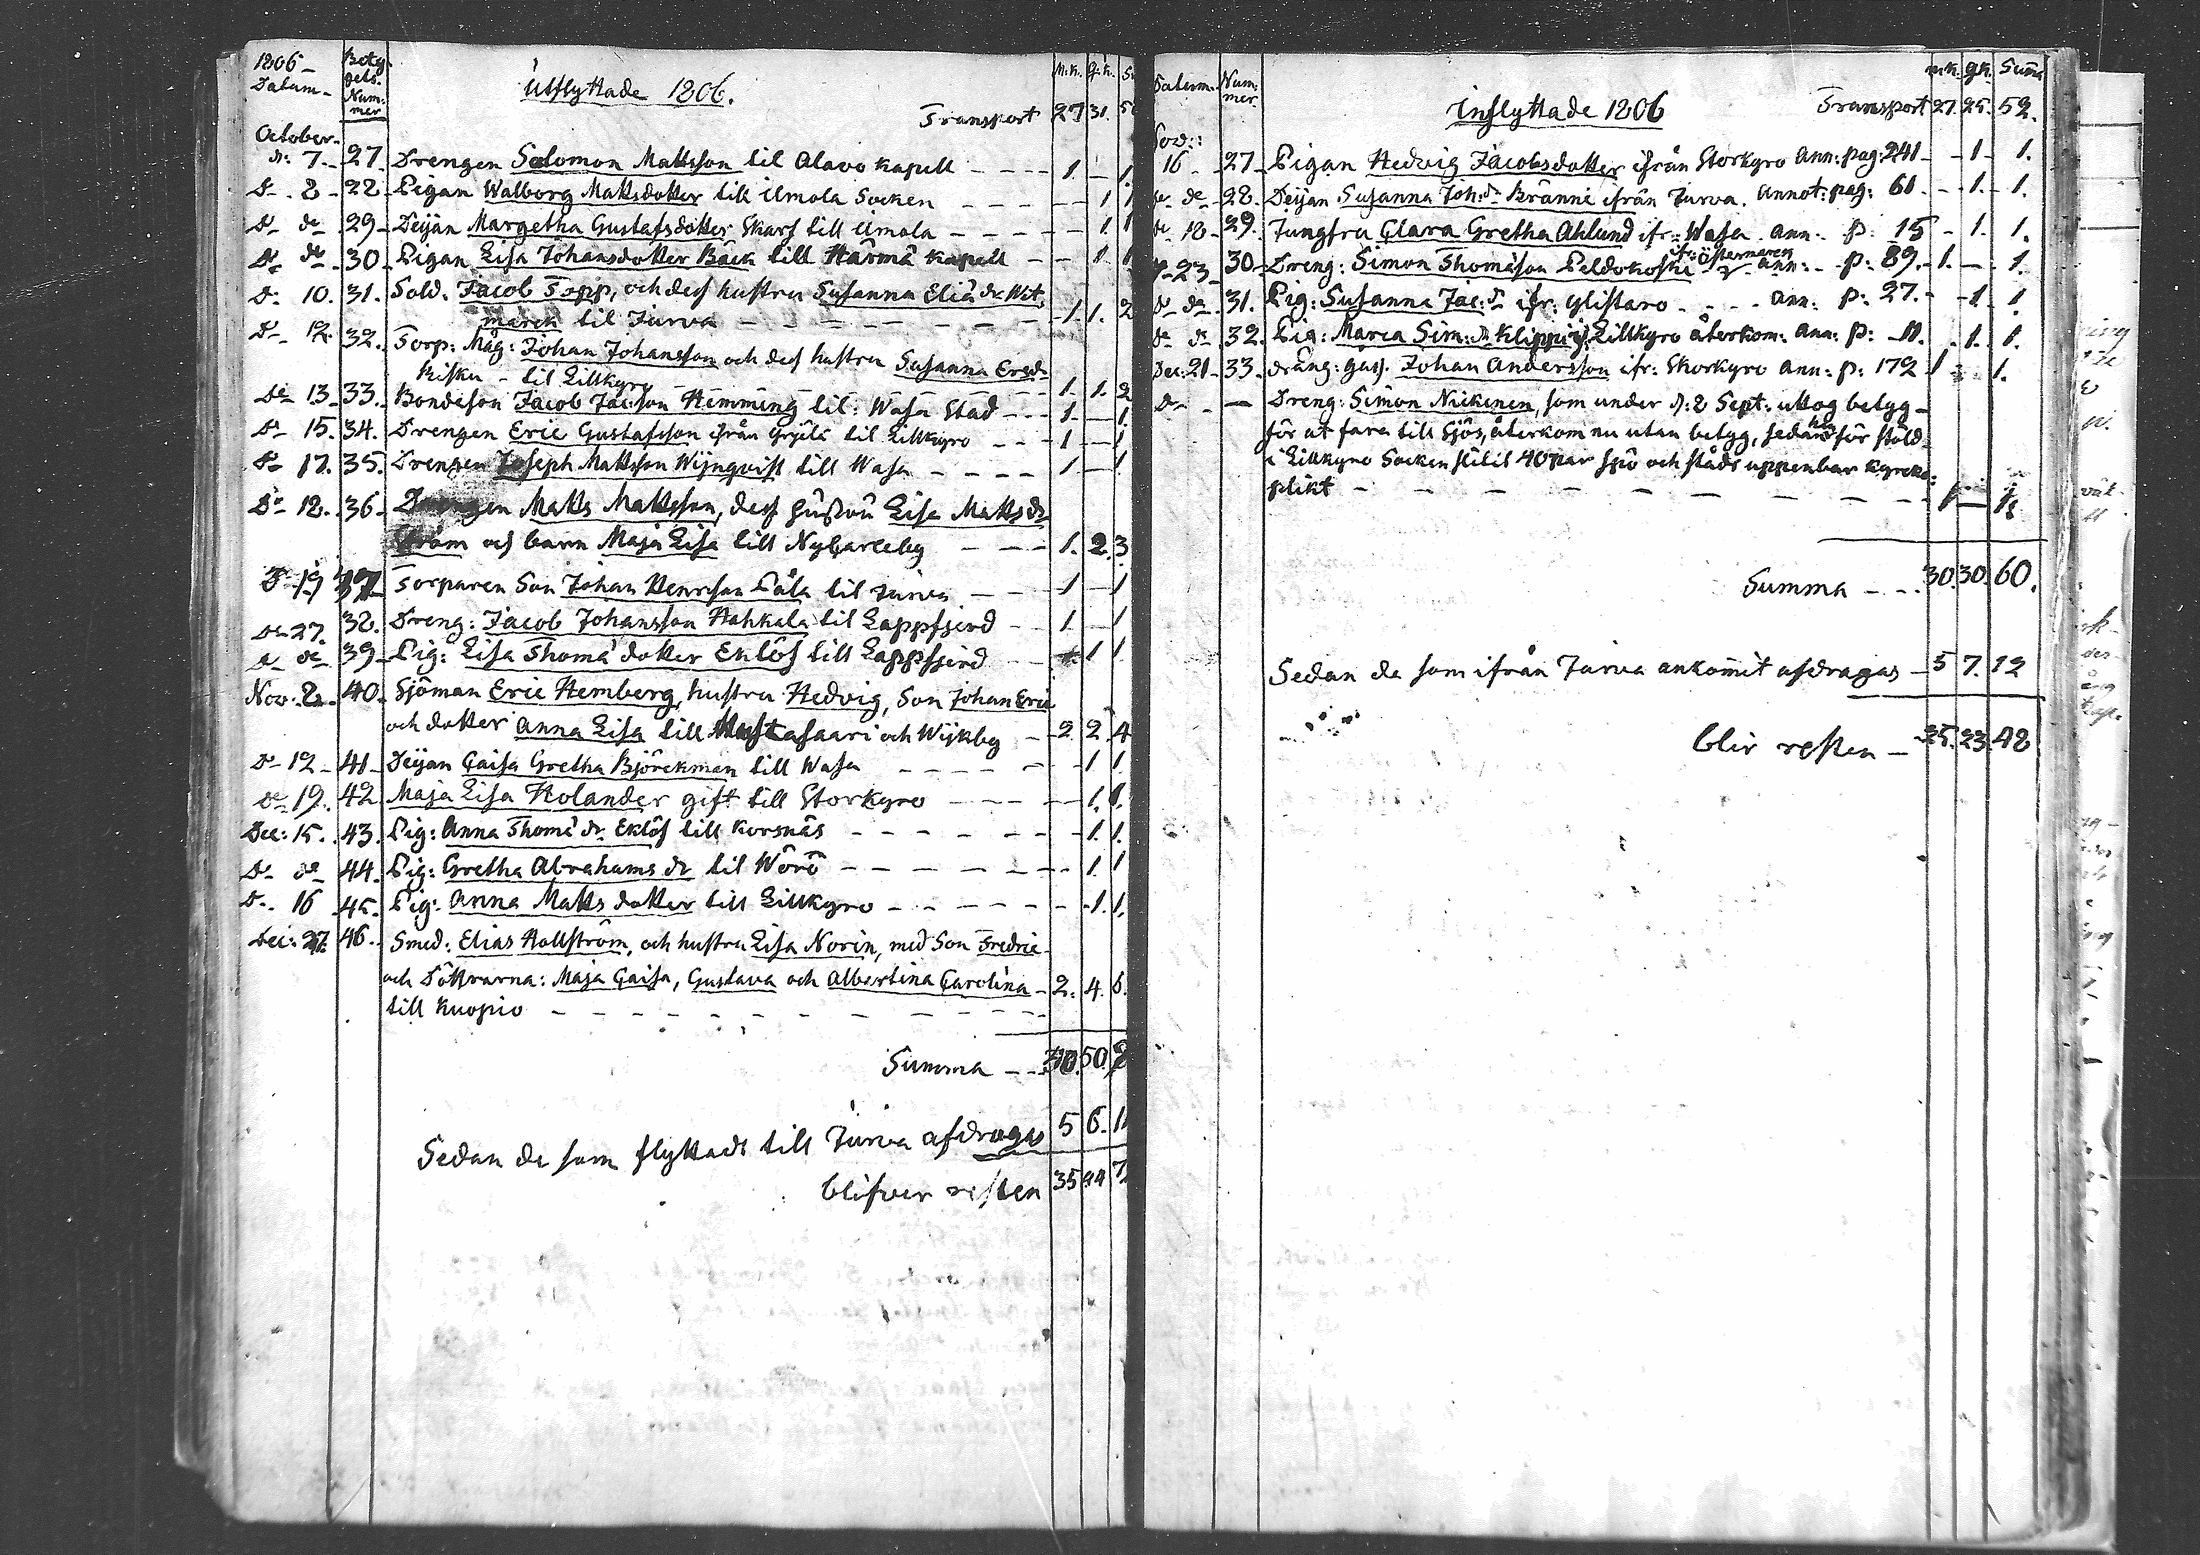 1806
Datum
Betygdels. Nummer
Utflyttade 1806.
M.k. Q.k.
Transport 27 31.
October.
d: 7. 27 Drengen Salomon Mattsson til Alavo Kapell 1. — 1.
D. 8 28 Pigan Walborg Mattsdotter till Ilmola Socken 1 1
D de 29 Deijan Margetha Gustafsdotter Skarf till Ilmola 1. 1
D de 30 Pigan Lisa Johansdotter Bäck till Härmä Kapell 1. 1
D: 10. 31. Sold. Jacob Topp, och dess hustru Susanna Elia dr Wit-
marck til Jurva 1. 1. 2
D 12. 32. Torp: Måg: Johan Johansson och dess hustru Susanna Ersd:
Kisku til Lillkyro 1. 1. 2
D 13 33. Bondeson Jacob Jacson Hemming til: Wasa Stad 1. — 1.
D 15. 34. Drengen Eric Gustafsson ifrån til Lillkyro 1 — 1
D 17. 35. Drengen Joseph Mattsson Wijnqvist till Wasa 1. — 1.
D 18. 36 Drengen Matts Mattsson, dess hustru Lisa Matts dr
Ström och barn Maja Lisa till Nycarleby 1. 2. 3
D 19 37 Torparen Son Johan Henrsson Påla til Jurva 1 — 1
D 27. 38. Dreng: Jacob Johansson Hahkala til Lappfjerd 1. — 1
d de 39 Pig: Lisa Thoma dotter Eklöf till Lappfjerd 1 1
Nov: 2 40. Sjöman Eric Hemberg, hustru Hedvig, Son Johan Eric
och dotter Anna Lisa till Mustasaari och Wijkby 2 2 4
D 12 41 Deijan Caisa Gretha Björckman till Wasa 1 1
D 19. 42 Maja Lisa Holander gift till Storkyro 1. 1.
Dec: 15. 43. Pig: Anna Thoma dr Eklöf till Korsnäs 1. 1
D de 44. Pig: Gretha Abrahams dr til Wörö 1. 1
D. 16 45. Pig: Anna Matts dotter till Lillkyro 1. 1.
Dec: 27. 46. Smed: Elias Hallström, och hustru Lisa Norin, med Son Fredric
och Döttrarna: Maja Caisa, Gustava och Albertina Carolina 2. 4. 6.
till Kuopio
Summa 50.
Sedan de som flyttadt till Jurva afdrages 5 6. 11
blifver resten 35 44
Datum. Nummer
Inflyttade 1806
m.k. q.k. Summa
Transport 27. 25. 52.
16 27 Pigan Hedvig Jacobsdotter ifrån Storkyro Ann: pag: 241 — 1 — 1.
d de 28. Deijan Susanna Joh: dr Bränni ifrån Jurva. Annot: pag: 61 — 1. — 1.
d 18 29. Jungfru Clara Gretha Ahlund ifr: Wasa Ann: p: 15 — 1. 1.
D 23 30 Dreng: Simon Thomasson Peldokoski ifr: Östermyren ann: p: 89. 1. — 1.
D de 31. Pig: Susanna Jac: dr ifr: Ylistaro Ann: p: 27. — 1 1
D d 32. Pig: Maria Sim: dr Klippi ifr Lillkyro återkom: Ann: p: 11. 1. 1.
Dec: 21 33. dräng: gåss. Johan Andersson ifr: Storkyro Ann: p: 172 1 1.
D — Dreng: Simon Nickenen, som under d: 2 Sept: uttog betyg
för at fara till Sjös, återkom nu utan betyg, sedan han för stöld
i Lillkyro Socken slitit 40 par spö och stådt uppenbar kyrcko-
plikt 1 — 1.
Summa 30. 30. 60.
Sedan de som ifrån Jurva ankommit afdragas 5 7. 12
blir resten 25. 23. 48